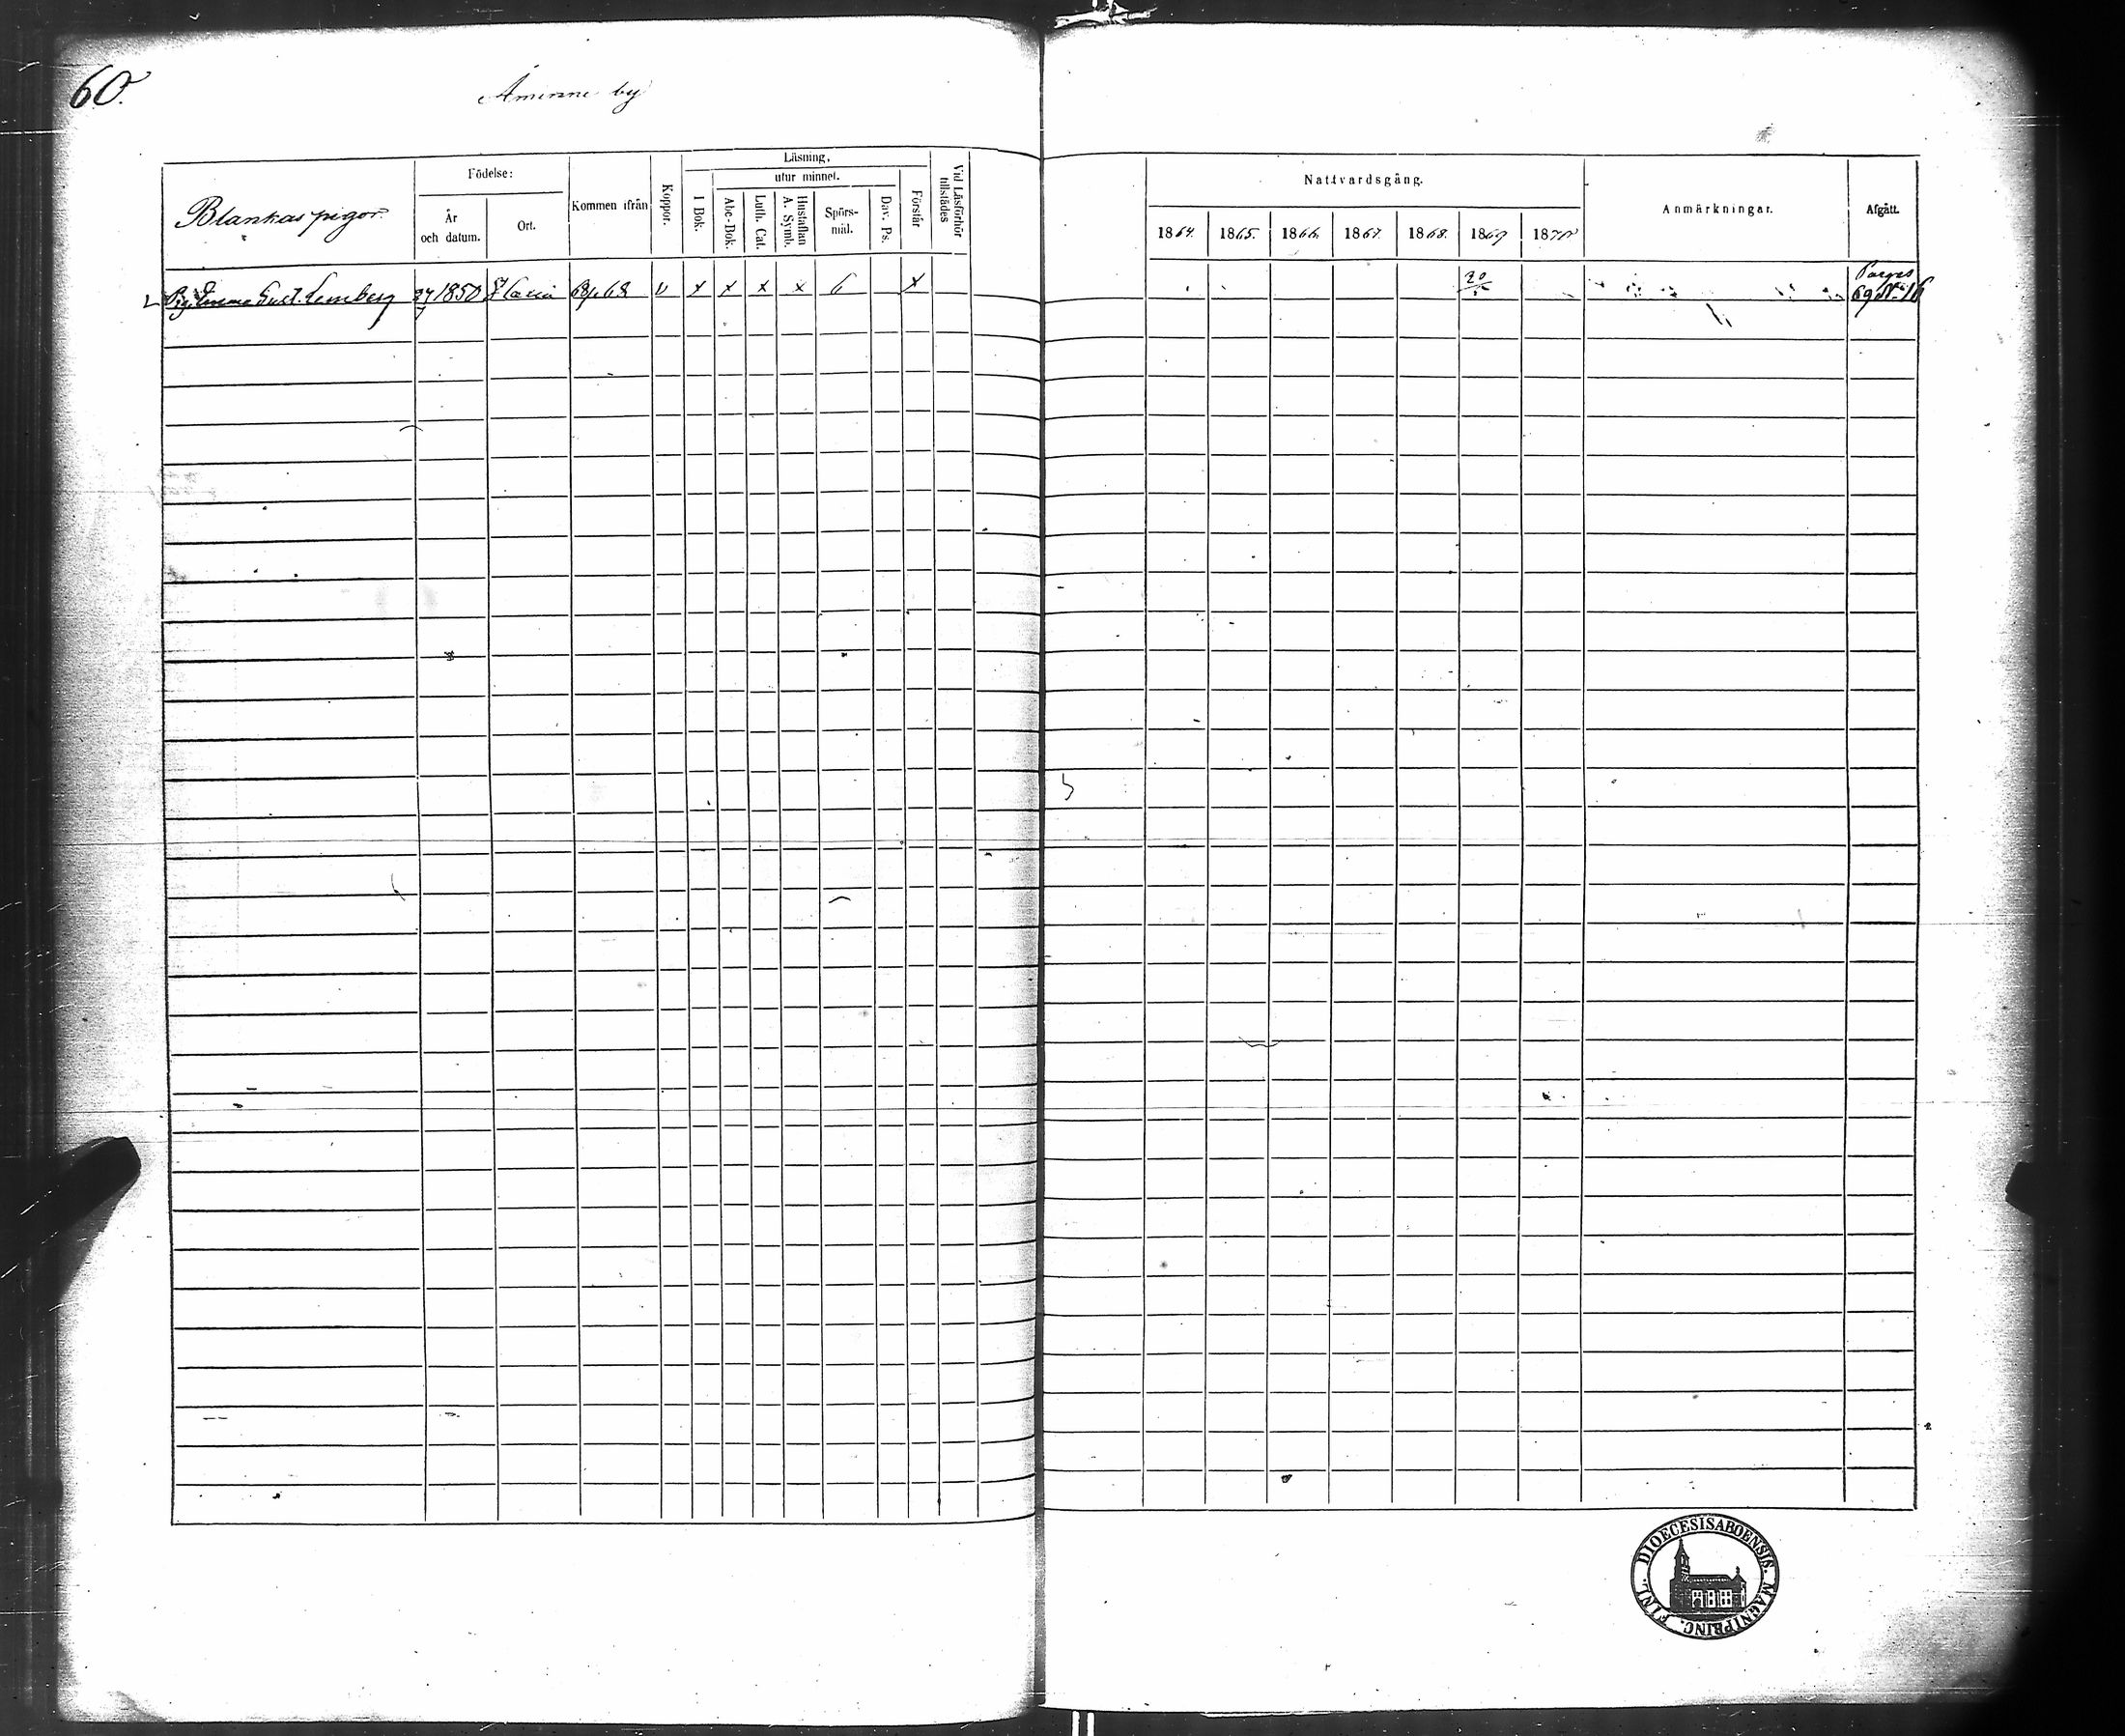 60.
Åminne by
Blankas pigor.
Födelse:
År
och datum.
Ort.
Kommen ifrån
Koppor.
Läsning,
utur minnet.
I Bok.
Abc-Bok.
Luth. Cat.
Hustaflan
A. Symb.
Spörs-
mål.
Dav. Ps.
Förstår
Vid Läsförhör
tillstädes
Nattvardsgång.
1864. 1865. 1866. 1867. 1868. 1869 1870
Anmärkningar.
Afgått.
Pig. Emma Gust. Lemberg 27/7 1850 68 v x x x x 6 x 20/5 Pargas
69 N. 16
DIOECESIS ABOENSIS. MAGNI PRINC. FINL.